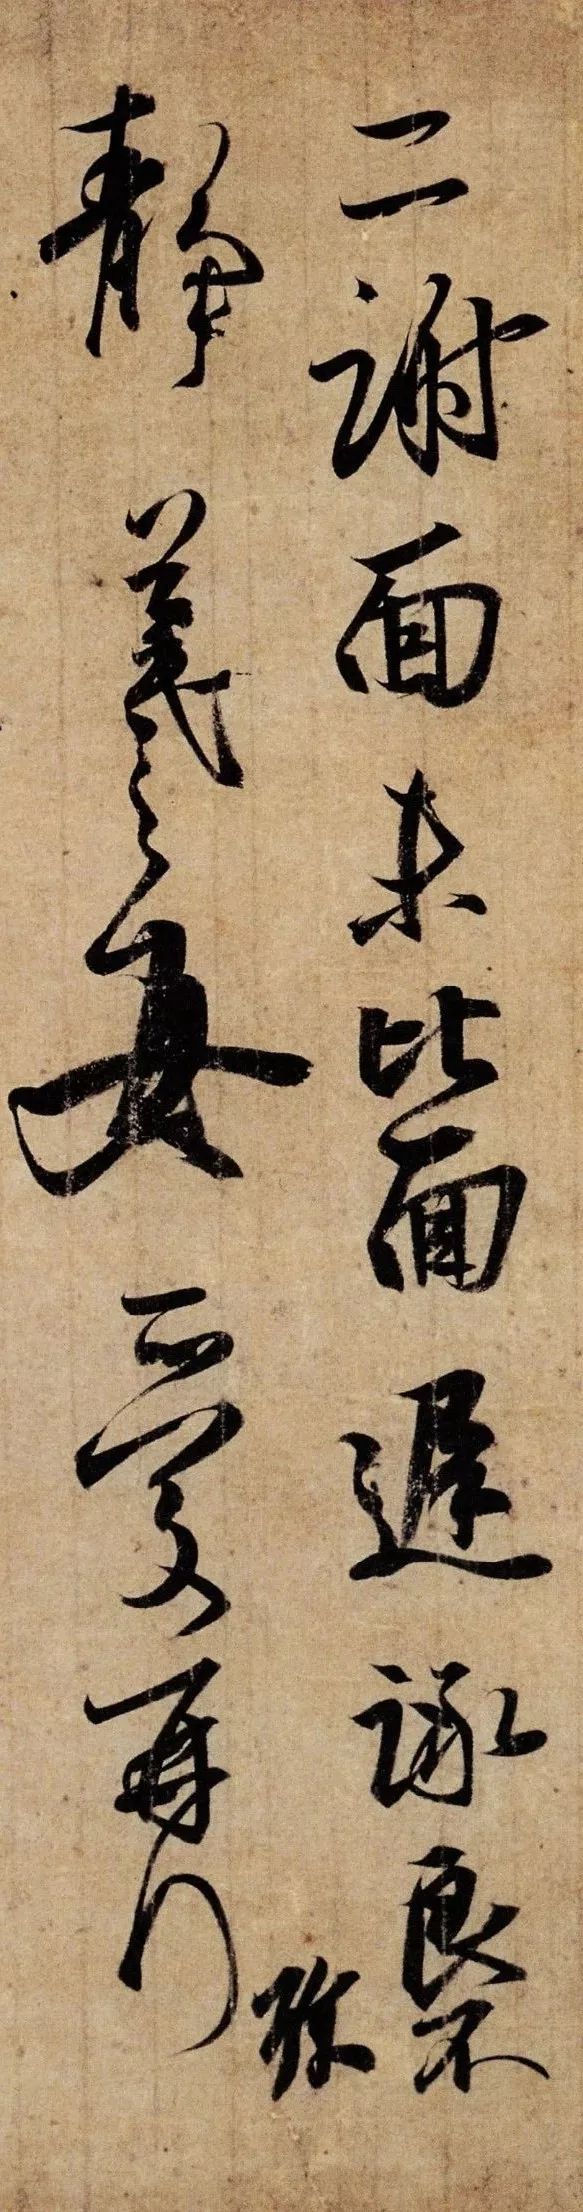 二謝面未比面遲詠良不
靜羲之女愛再拜
珎